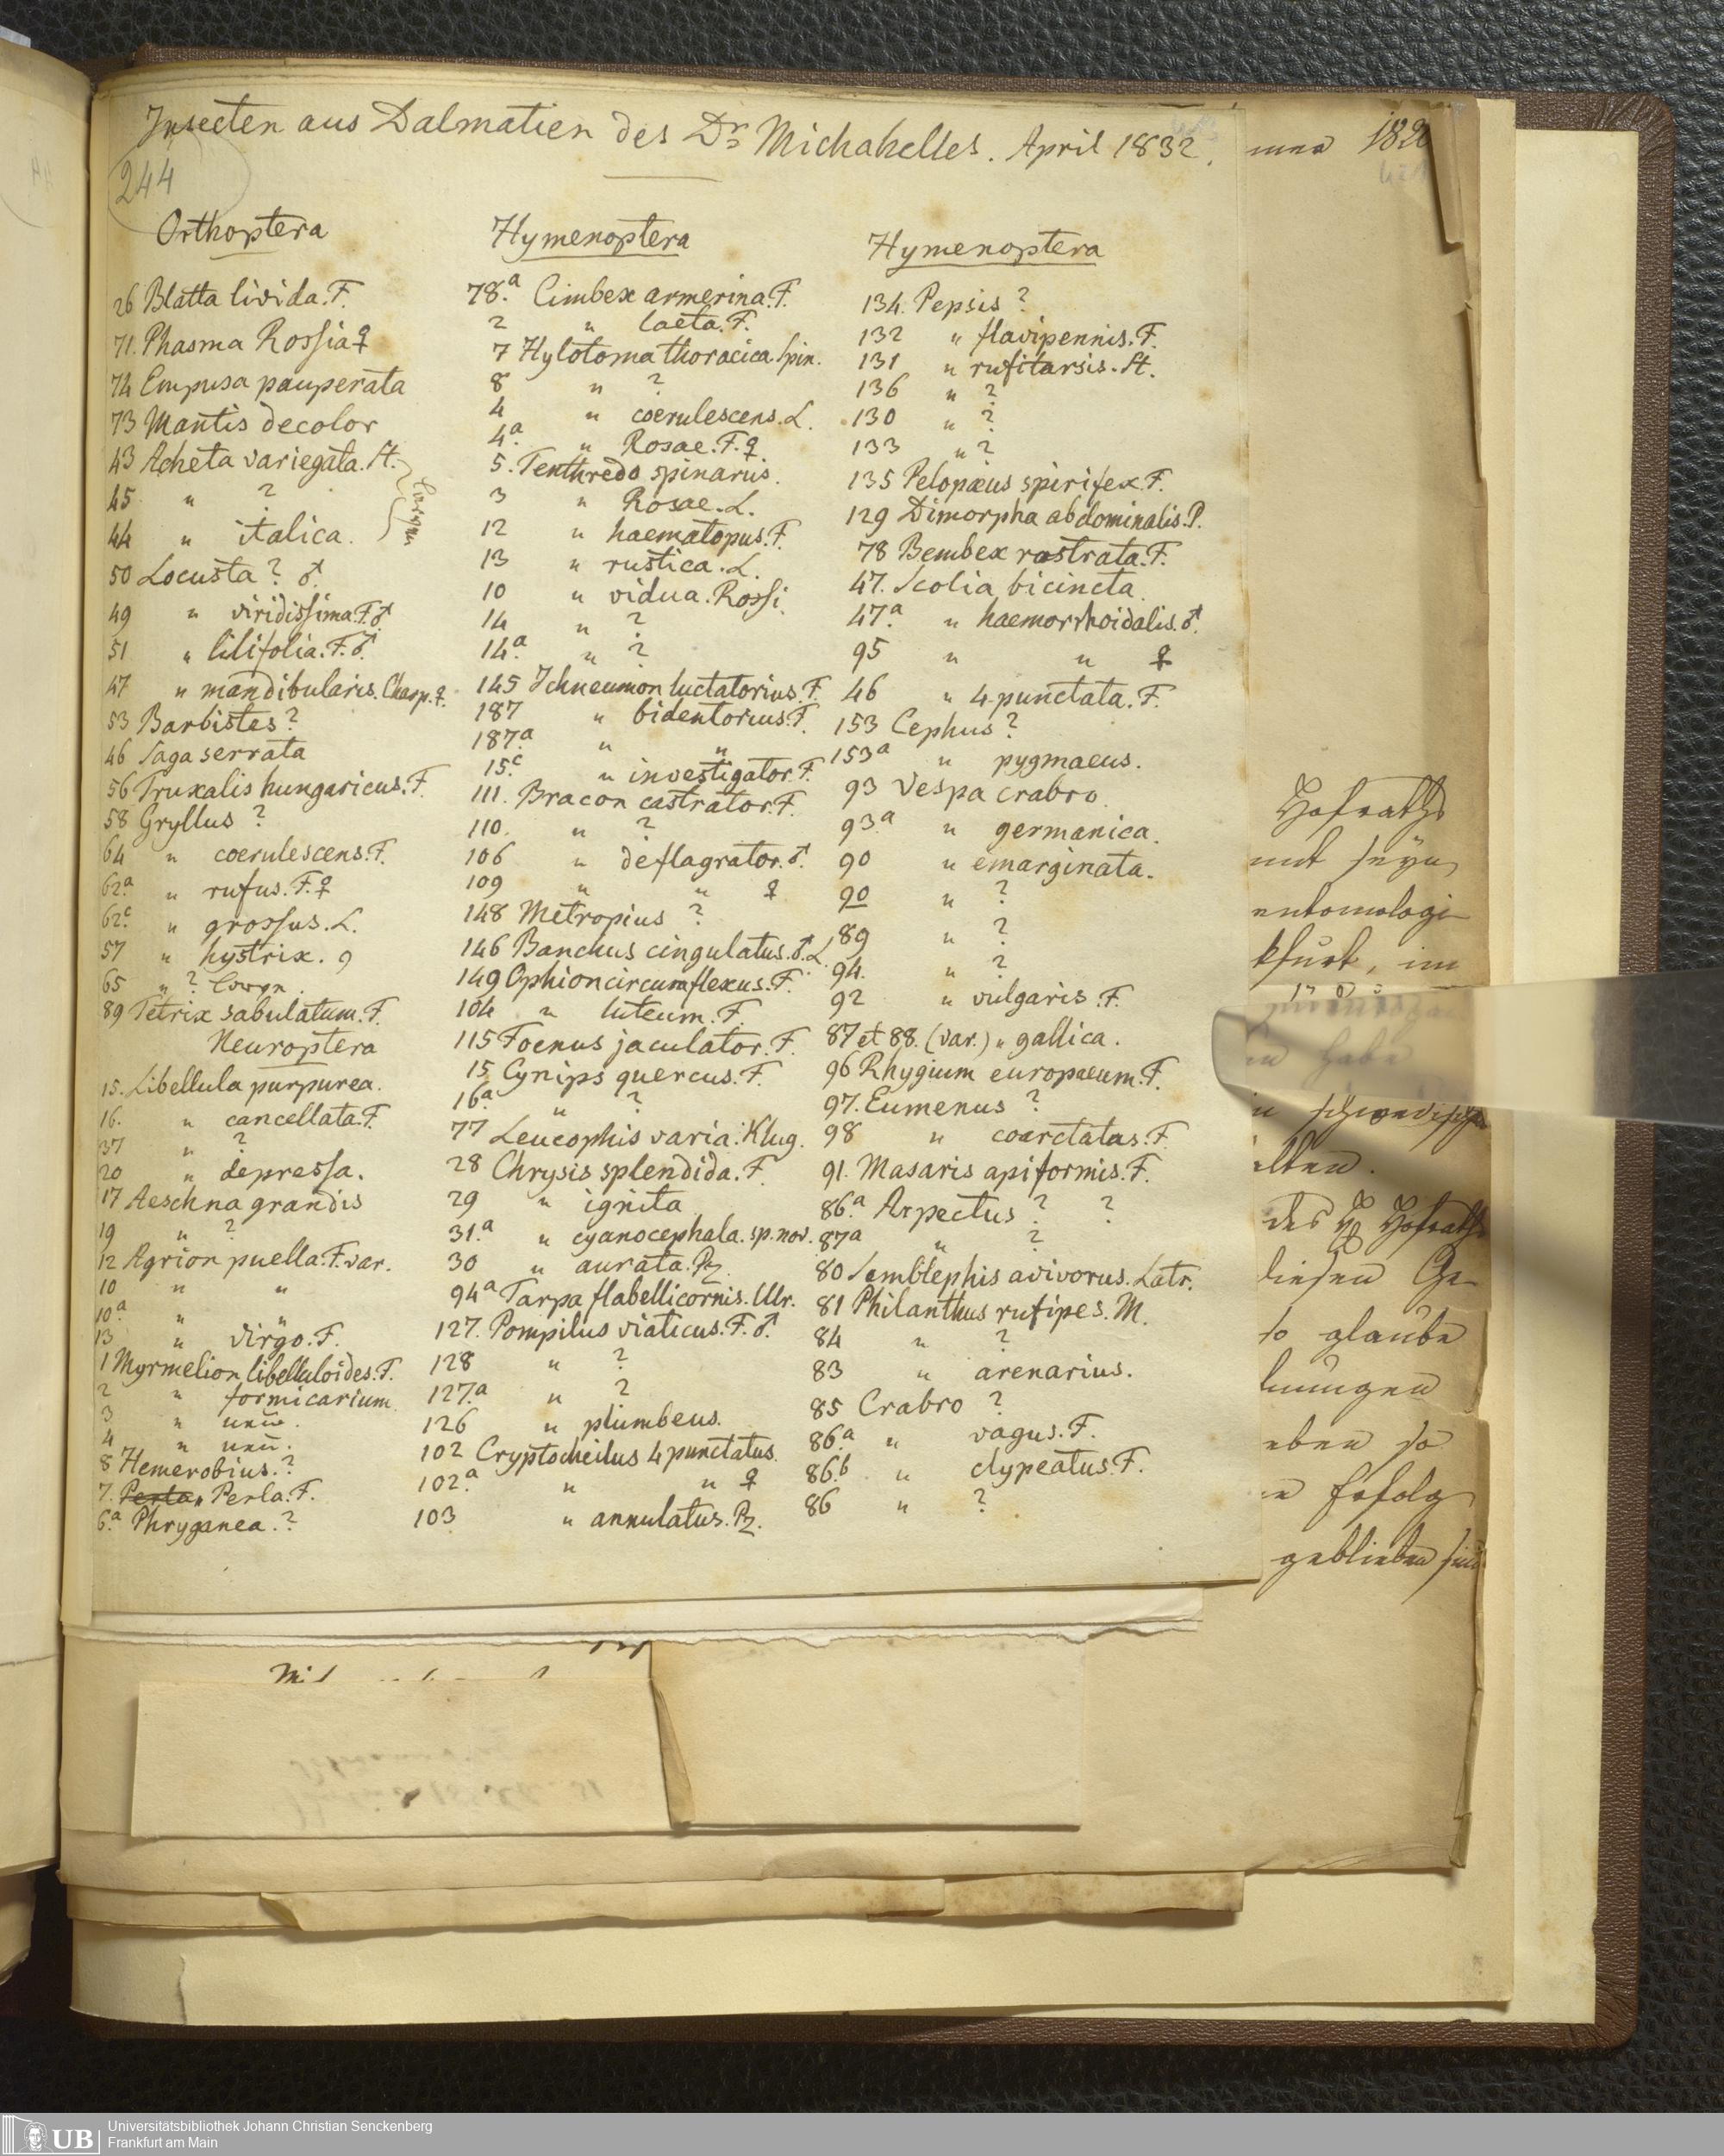 Insecten aus Dalmatien des Dr Michahelles. April 1832.
244
Orthoptera
26 Blatta livida. F.
71. Phasma Rossia ♀
74 Empusa pauperata
73 Mantis decolor
43 Acheta variegata. St.
45 " ?
44 " italica.
Larven
50 Locusta ? ♂
49 " viridissima. F. ♂
51 " lilifolia. F. ♂.
47 " mandibularis. Charp. ♀.
53 Barbistes ?
46 Saga serrata
56 Truxalis hungaricus. F.
58 Gryllus ?
64 " coerulescens. F.
62.a " rufus. F. ♀
62.c " grossus. L.
57 " hystrix. 9
65 " ? Larvn.
89 Tetrix sabulatum. F.
Neuroptera
15. Libellula purpurea.
16. " cancellata. F.
37 " ?
20 " depressa.
17 Aeschna grandis
19 " ?
12 Agrion puella. F. var.
10 " "
10.a " "
13 " virgo. F.
1 Myrmelion libelluloides. F.
2 " formicarium
3 "
4 "
8 Hemerobius. ?
7. Perla " Perla. F.
6.a Phryganea. ?
Hymenoptera
78.a Cimbex armerina. F.
2 " laeta. F.
7 Hylotoma thoracica. Spin.
8 " ?
4 " coerulescens. L.
4.a " Rosae. F. ♀.
5. Tenthredo spinarus.
3 " Rosae. L.
12 " haematopus. F.
13 " rustica. L.
10 " vidua. Rossi
14 " ?
14.a " ?
145 Ichneumon luctatorius. F.
187 " bidentorius. F.
187.a " "
15.c " investigator. F.
111. Bracon castrator. F.
110. " ?
106 " deflagrator. ♂.
109 " " ♀
148 Metropius ?
146 Banchus cingulatus. ♂. L.
149 Ophion circumflexus. F.
104 " luteum. F.
115 Foenus jaculator. F.
15 Cynips quercus. F.
16.a " ?
77 Leucophis varia. Klug.
28 Chrysis splendida. F.
29 " ignita
31.a " cyanocephala. sp. nov.
30 " aurata. Pz.
94a Tarpa flabellicornis. Ulr.
127. Pompilus viaticus. F. ♂.
128 " ?
127.a " ?
126 " plumbeus.
102 Cryptocheilus 4 punctatus.
102.a " " ♀
103 " annulatus. Pz.
Hymenoptera
134. Pepsis ?
132 " flavipennis. F.
131 " rufitarsis. St.
136 " ?
130 " ?
133 " ?
135 Pelopæus spirifex. F.
129 Dimorpha abdominalis. P.
78 Bembex rostrata. F.
47. Scolia bicincta
47.a " haemorrhoidalis. ♂.
95 " " ♀
46 " 4-punctata. F.
153 Cephus ?
153a " pygmaeus.
93 Vespa crabro.
93.a " germanica.
90 " emarginata.
90 " ?
89 " ?
94. " ?
92 " vulgaris. F.
87 et 88. (var.) " gallica.
96 Rhygium europaeum. F.
97. Eumenus ?
98 " coarctatus. F.
91. Masaris apiformis. F.
86.a Arpectus ? ?
87a " ?
80 Semblephis avivorus. Latr.
81 Philanthus rufipes. M.
84 " ?
83 " arenarius.
85 Crabro ?
86.a " vagus. F.
86.b " clypeatus. F.
86 " ?
Hofraths
mit seyn
entomologi-
kfurt, im
en habe
n schwedischen
alten.
des Hofraths
diesen Ge-
so glaube
eben so
n Erfolg
geblieben sind
UB
Universitätsbibliothek Johann Christian Senckenberg
Frankfurt am Main